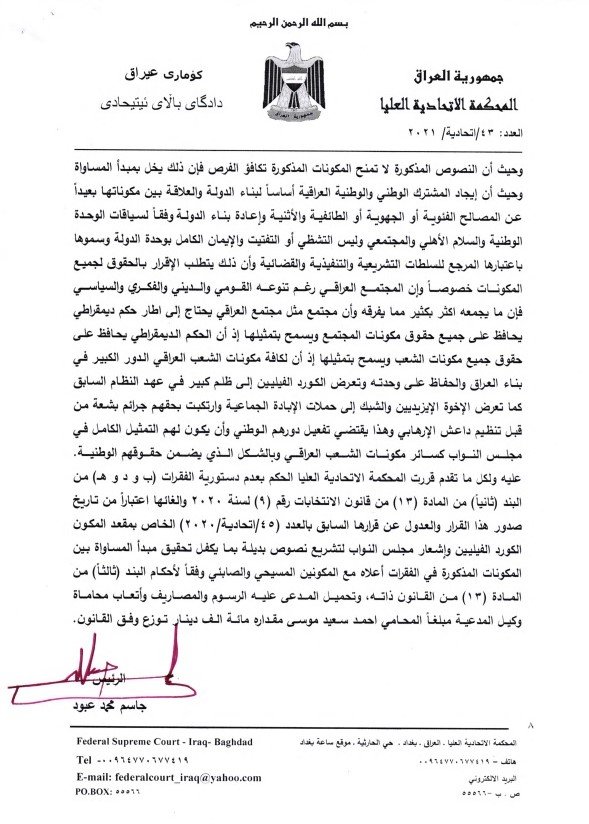 بسم الله الرحمن الرحيم
جمهورية العراق
المحكمة الاتحادية العليا
العدد: ٤٣/اتحادية/ ٢٠٢١
كۆماری عیراق
دادگای باڵای ئیتیحادی
جمهورية العراق
وحيث أن النصوص المذكورة لا تمنح المكونات المذكورة تكافؤ الفرص فإن ذلك يخل بمبدأ المساواة
وحيث أن إيجاد المشترك الوطني والوطنية العراقية أساساً لبناء الدولة والعلاقة بين مكوناتها بعيداً
عن المصالح الفئوية أو الجهوية أو الطائفية والأثنية وإعادة بناء الدولة وفقاً لسياقات الوحدة
الوطنية والسلام الأهلي والمجتمعي وليس التشظي أو التفتيت والإيمان الكامل بوحدة الدولة وسموها
باعتبارها المرجع للسلطات التشريعية والتنفيذية والقضائية وأن ذلك يتطلب الإقرار بالحقوق لجميع
المكونات خصوصاً وإن المجتمع العراقي رغم تنوعه القومي والديني والفكري والسياسي
فإن ما يجمعه اكثر بكثير مما يفرقه وأن مجتمع مثل مجتمع العراقي يحتاج إلى اطار حكم ديمقراطي
يحافظ على جميع حقوق مكونات المجتمع ويسمح بتمثيلها إذ أن الحكم الديمقراطي يحافظ على
حقوق جميع مكونات الشعب ويسمح بتمثيلها إذ أن لكافة مكونات الشعب العراقي الدور الكبير في
بناء العراق والحفاظ على وحدته وتعرض الكورد الفيليين إلى ظلم كبير في عهد النظام السابق
كما تعرض الإخوة الإيزيديين والشبك إلى حملات الإبادة الجماعية وارتكبت بحقهم جرائم بشعة من
قبل تنظيم داعش الإرهابي وهذا يقتضي تفعيل دورهم الوطني وأن يكون لهم التمثيل الكامل في
مجلس النواب كسائر مكونات الشعب العراقي وبالشكل الذي يضمن حقوقهم الوطنية.
عليه ولكل ما تقدم قررت المحكمة الاتحادية العليا الحكم بعدم دستورية الفقرات (ب و د و هـ) من
البند (ثانياً) من المادة (١٣) من قانون الانتخابات رقم (٩) لسنة ٢٠٢٠ والغائها اعتباراً من تاريخ
صدور هذا القرار والعدول عن قرارها السابق بالعدد (٤٥/اتحادية/٢٠٢٠) الخاص بمقعد المكون
الكورد الفيليين وإشعار مجلس النواب لتشريع نصوص بديلة بما يكفل تحقيق مبدأ المساواة بين
المكونات المذكورة في الفقرات أعلاه مع المكونين المسيحي والصابئي وفقاً لأحكام البند (ثالثاً) من
المادة (١٣) من القانون ذاته، وتحميل المدعى عليه الرسوم والمصاريف وأتعاب محاماة
وكيل المدعية مبلغاً المحامي احمد سعيد موسى مقداره مائة الف دينار توزع وفق القانون.
الرئيس
جاسم محمد عبود
٨
المحكمة الاتحادية العليا . العراق . بغداد . حي الحارثية . موقع ساعة بغداد
هاتف – ٠٠٩٦٤٧٧٠٦٧٧٤١٩
البريد الالكتروني
ص . ب -٥٥٥٦٦
Federal Supreme Court - Iraq- Baghdad
Tel -٠٠٩٦٤٧٧٠٦٧٧٤١٩
E-mail: federalcourt_iraq@yahoo.com
PO.BOX: ٥٥٥٦٦